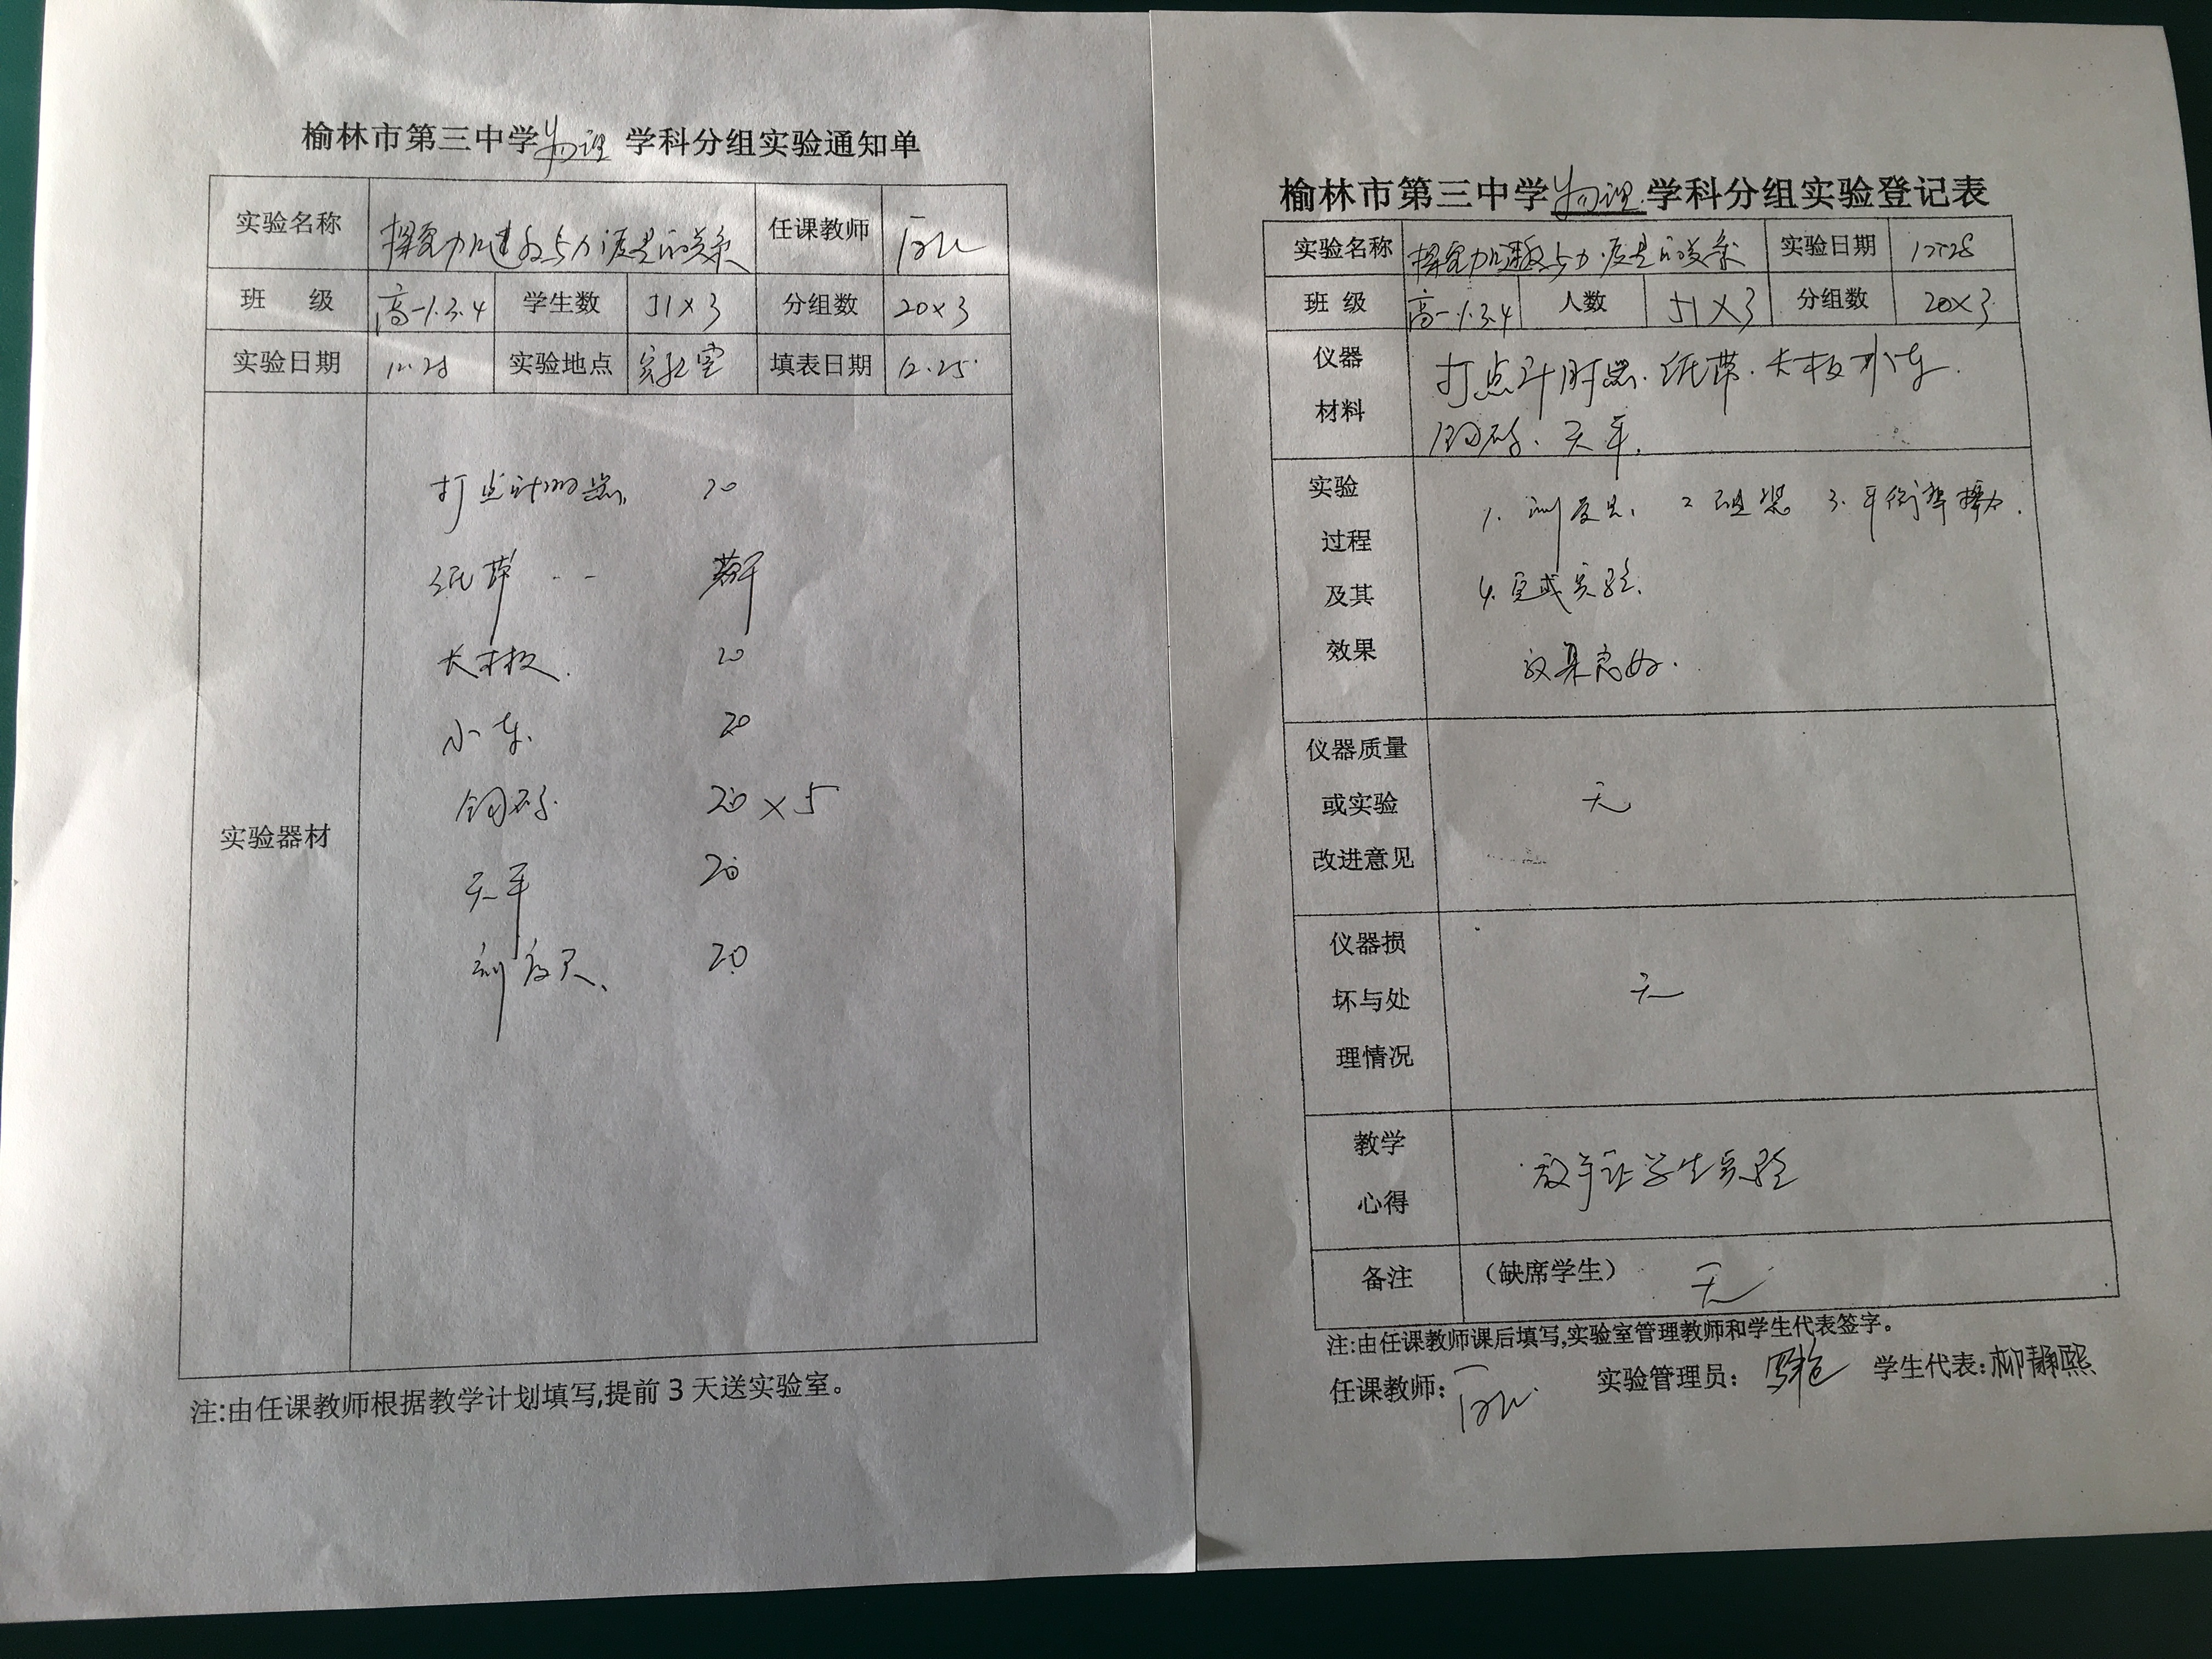 榆林市第三中学物理 学科分组实验通知单
实验名称 探究加速度与力质量的关系 任课教师
班 级 高一1.3.4 学生数 51×3 分组数 20×3
实验日期 12.28 实验地点 实验室 填表日期 12.25
实验器材
打点计时器 20
纸带 若干
长木板 20
小车 20
钩码 20×5
天平 20
刻度尺 20
注:由任课教师根据教学计划填写,提前3天送实验室。
榆林市第三中学物理学科分组实验登记表
实验名称 探究加速度与力质量的关系 实验日期 12.28
班 级 高一1.3.4 人数 51×3 分组数 20×3
仪器
材料
打点计时器.纸带.长木板 小车.
钩码、天平.
实验
过程
及其
效果
1. 测质量 2 组装 3. 平衡摩擦力.
4.完成实验.
效果良好.
仪器质量
或实验
改进意见
无
仪器损
坏与处
理情况
无
教学
心得
放手让学生实验
备注 （缺席学生） 无
注:由任课教师课后填写,实验室管理教师和学生代表签字。
任课教师: 实验管理员: 学生代表:柳静熙